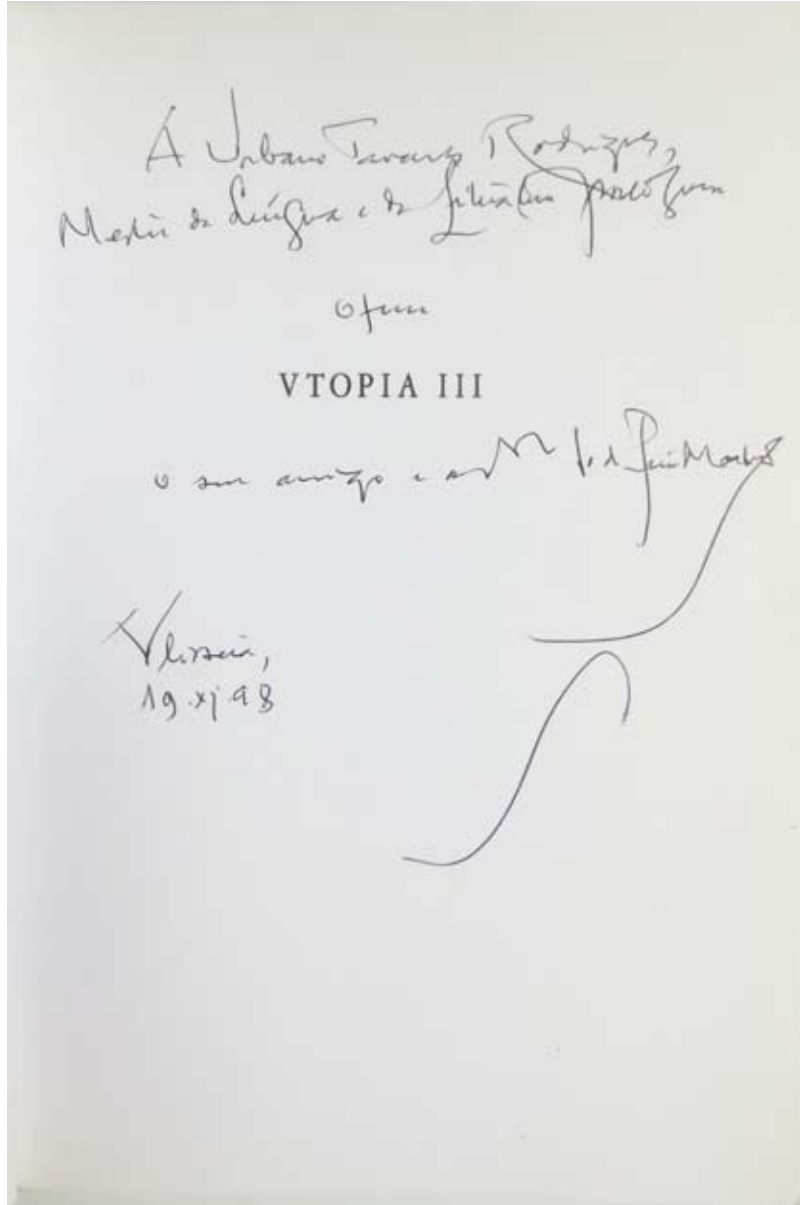 A Urbano Tavares Rodrigues,
Mestre da Língua e da Literatura Portuguesa
VTOPIA III
o seu amigo e ad.or J. de Pina Martins
Vlisseia,
19.xj.98